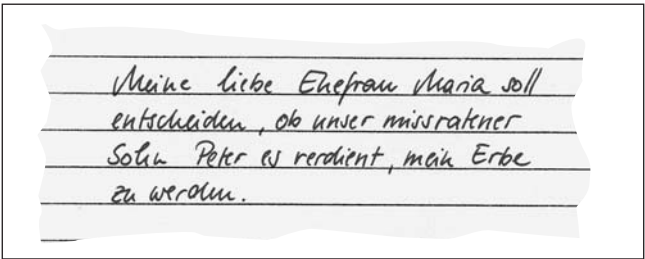 Meine liebe Ehefrau Maria soll
entscheiden, ob unser missratener
Sohn Peter es verdient, mein Erbe
zu werden.